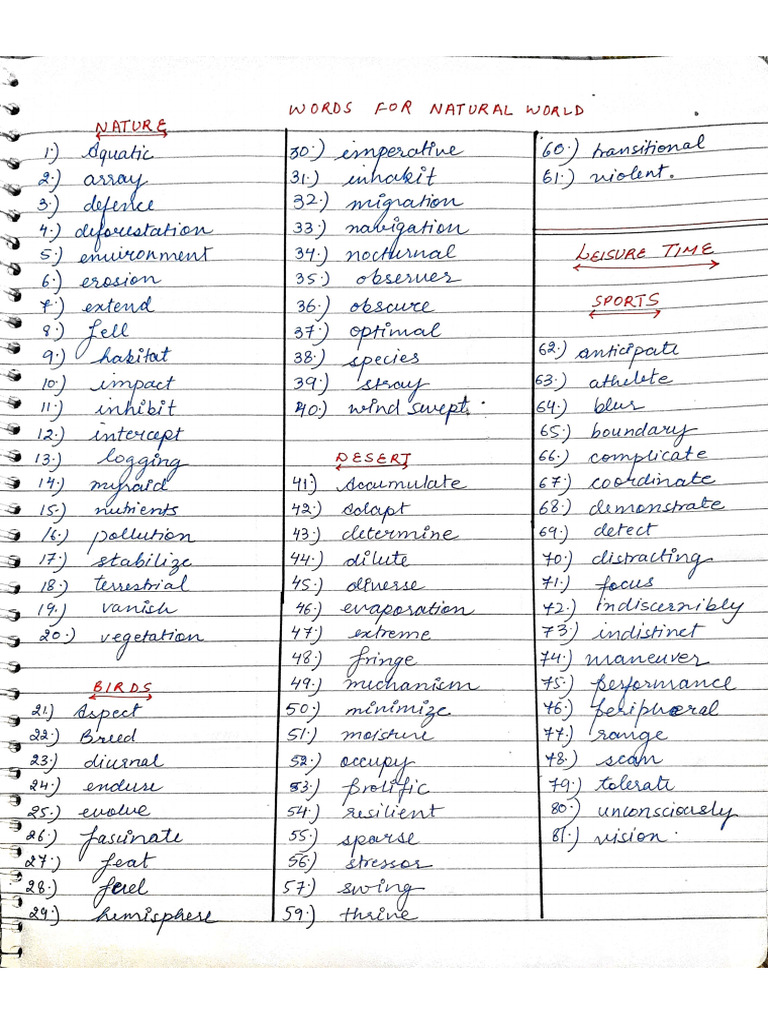 WORDS FOR NATURAL WORLD
NATURE
1.) Aquatic
2.) array
3.) defence
4.) deforestation
5.) environment
6.) erosion
7.) extend
8.) fell
9.) habitat
10.) impact
11.) inhibit
12.) intercept
13.) logging
14.) myraid
15.) nutrients
16.) pollution
17.) stabilize
18.) terrestrial
19.) vanish
20.) vegetation
BIRDS
21.) Aspect
22.) Breed
23.) diurnal
24.) endure
25.) evolve
26.) fascinate
27.) feat
28.) fuel
29.) hemisphere
30.) imperative
31.) inhabit
32.) migration
33.) navigation
34.) nocturnal
35.) observer
36.) obscure
37.) optimal
38.) species
39.) stray
40.) wind swept.
DESERT
41.) Accumulate
42.) adapt
43.) determine
44.) dilute
45.) diverse
46.) evaporation
47.) extreme
48.) fringe
49.) mechanism
50.) minimize
51.) moisture
52.) occupy
53.) prolific
54.) resilient
55.) sparse
56.) stressor
57.) swing
59.) thrive
60.) transitional
61.) violent.
LEISURE TIME
SPORTS
62.) anticipate
63.) athelete
64.) blur
65.) boundary
66.) complicate
67.) coordinate
68.) demonstrate
69.) detect
70.) distracting
71.) focus
72.) indiscernibly
73.) indistinct
74.) maneuver
75.) performance
76.) peripheral
77.) range
78.) scan
79.) tolerate
80.) unconsciously
81.) vision.